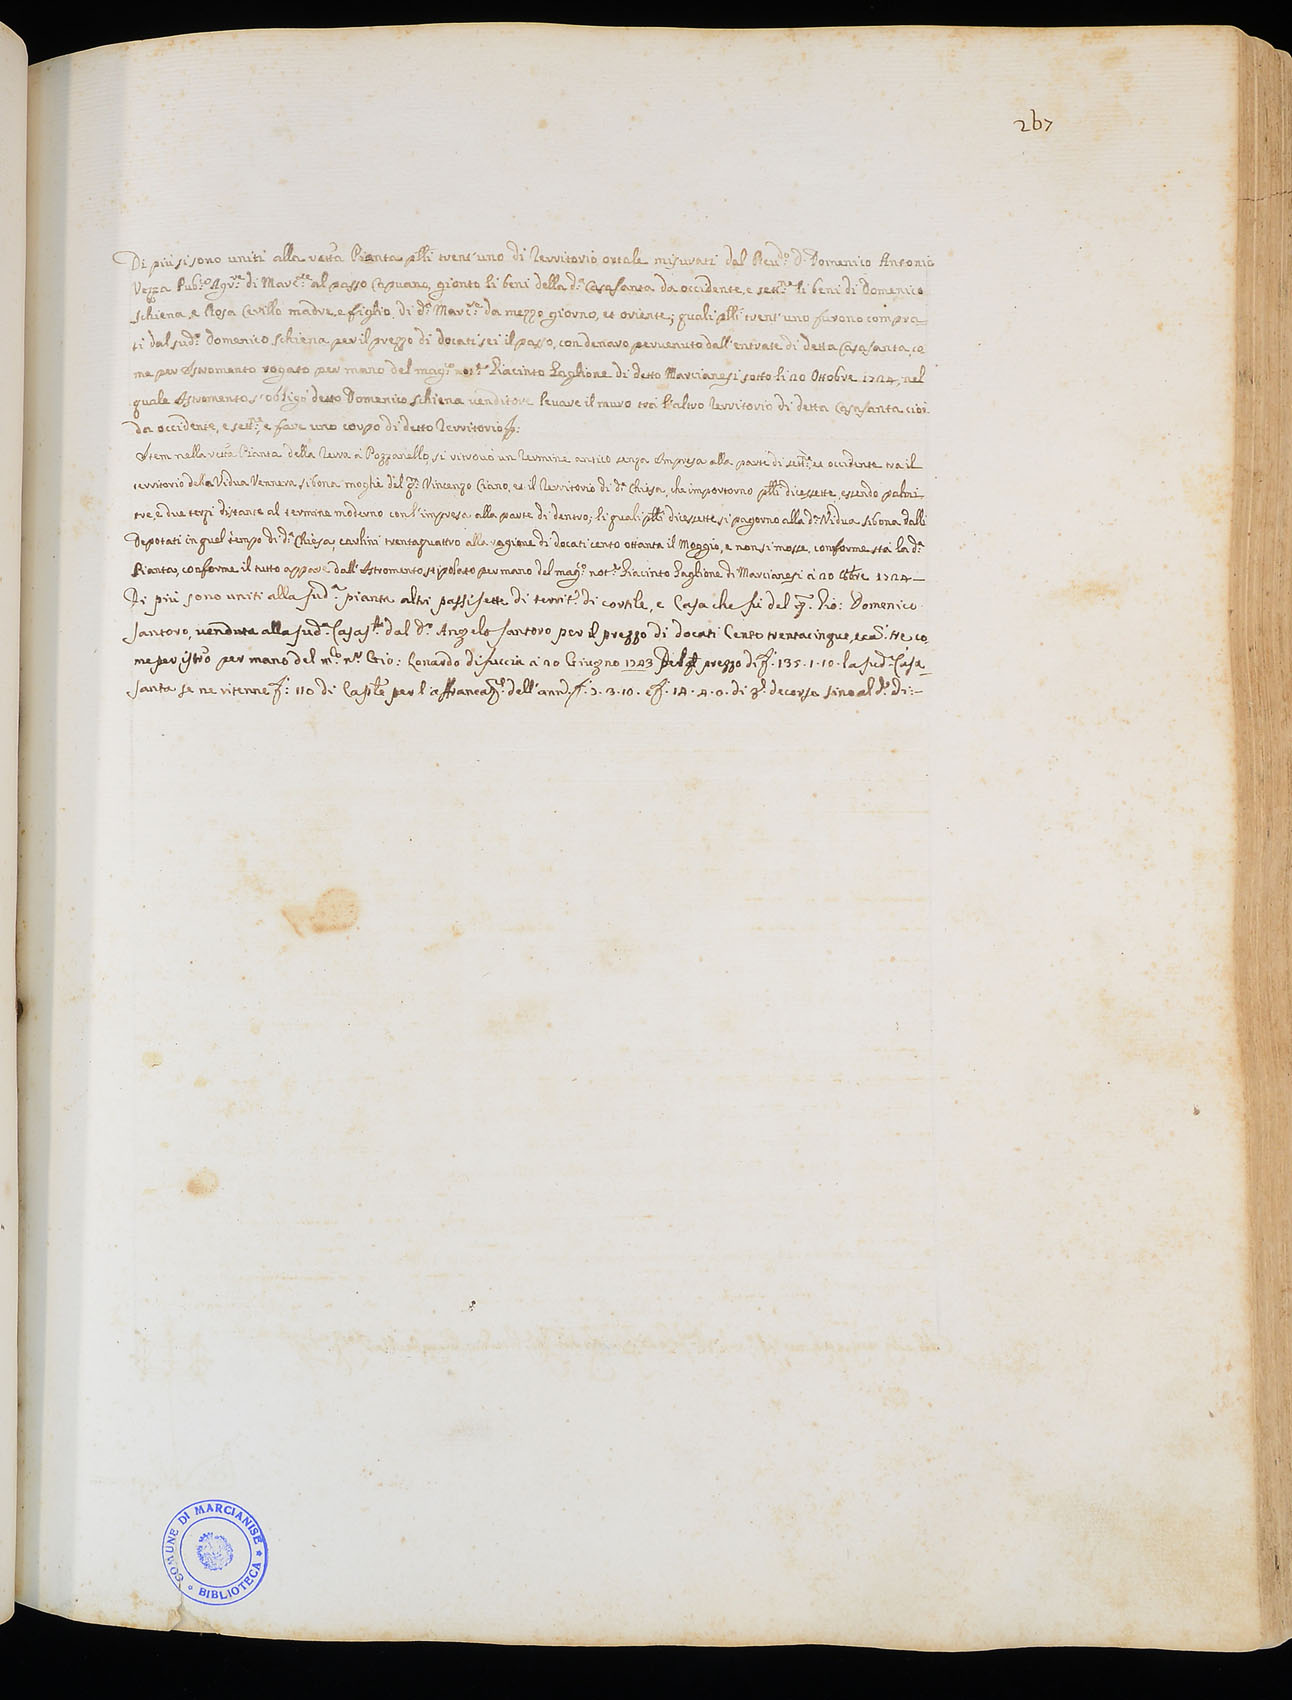 267
Di più si sono uniti alla retta Pianta passi trent'uno di Territorio ortale misurati dal Reud.º D. Domenico Antonio
Vezza Pub.º Agr.re di Marc.se al passo Capuano, gionto li beni della d.ª Casasanta da occidente, e sett.ne li beni di Domenico
Schiena, e Rosa Cerillo madre, e figlio, di d.º Marc.se da mezzo giorno, et oriente; quali passi trent'uno furono compra-
ti dal sud.º Domenico Schiena per il prezzo di docati sei il passo, con denaro pervenuto dall'entrate di detta Casasanta, co
me per Istromento rogato per mano del mag.º not.r Giacinto Paglione di detto Marcianesi sotto li 20 Ottobre 1724, nel
quale Istromento s'obligò detto Domenico Schiena venditore levare il muro trà l'altro Territorio di detta Casasanta cioè
da occidente, e sett.ne, e fare uno corpo di detto Territorio
Item nella retta Pianta della Terra à Pozzanello, si ritrovò un Termine antico senza Impresa alla parte di sett.ne et occidente tra il
territorio della Vidua Vennera Sibona moglie del q.m Vincenzo Ciano, et il Territorio di d.ª Chiesa, che importorno passi diecessette, essendo palmi
tre, e due terzi distante al termine moderno con l'impresa alla parte di dentro; li quali passi diecessette si pagorno alla d.ª Vidua Sibona dalli
Deputati in quel tempo di d.ª Chiesa, carlini trentaquattro alla ragione di docati cento ottanta il Moggio, e non si mosse, conforme stà la d.ª
Pianta, conforme il tutto appare dall'Istromento stipolato per mano del mag.º not.r Giacinto Paglione di Marcianesi à 20 8bre 1724
Di più sono uniti alla sud.ª pianta altri passi sette di territ.º di cortile, e Casa che fù del q.m Gio: Domenico
Santoro, venduta alla sud.ª Casas.ta dal d.º Angelo Santoro per il prezzo di docati Cento trentacinque, e car. tre co
me per istro per mano del m.co n.r Gio: Lonardo di fuccia à 20 Giugno 1743 Del prezzo di 135.1.10. la sud.ª Casa
santa se ne ritenne 110 di Capitale per l'affrancaz. dell'ann. 5.3.10. e 14.4.0. di decorso sino al d.º dì:
COMUNE DI MARCIANISE * BIBLIOTECA *